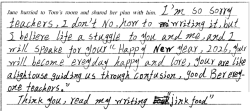 Jane hurried to Tom's room and shared her plan with him. I'm so sorry
teachers, I don't No, how to writing it, but
I believe life a stuggle to you and me, and I
will speake for your "Happy New year, 2026, your
will becoming everyday happy and lore, your are like
alighouse guiding us through confusion, good Ber ereg-
one teachers."
Think you, read my writing jink food"